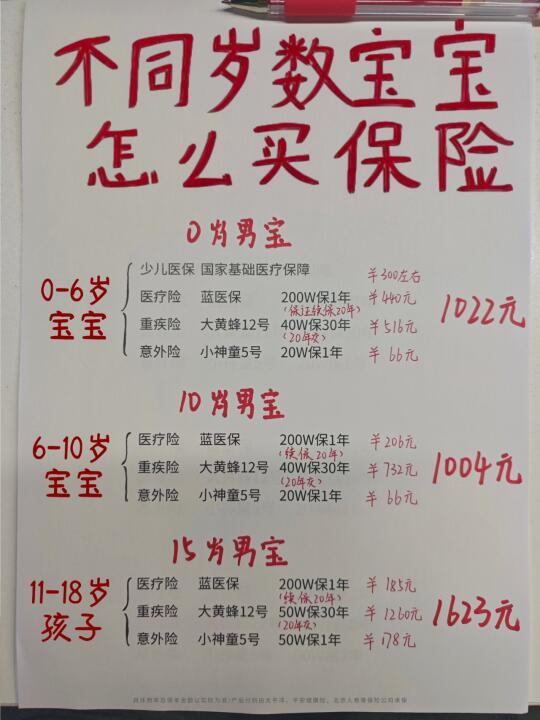 不同岁数宝宝
怎么买保险
0岁男宝
0-6岁
宝宝
少儿医保 国家基础医疗保障 ¥300左右
医疗险 蓝医保 200W保1年 ¥440元
(保证续保20年)
重疾险 大黄蜂12号 40W保30年 ¥516元
(20年交)
意外险 小神童5号 20W保1年 ¥66元
1022元
10岁男宝
6-10岁
宝宝
医疗险 蓝医保 200W保1年 ¥206元
(续保20年)
重疾险 大黄蜂12号 40W保30年 ¥732元
(20年交)
意外险 小神童5号 20W保1年 ¥66元
1004元
15岁男宝
11-18岁
孩子
医疗险 蓝医保 200W保1年 ¥185元
(续保20年)
重疾险 大黄蜂12号 50W保30年 ¥1260元
(20年交)
意外险 小神童5号 50W保1年 ¥178元
1623元